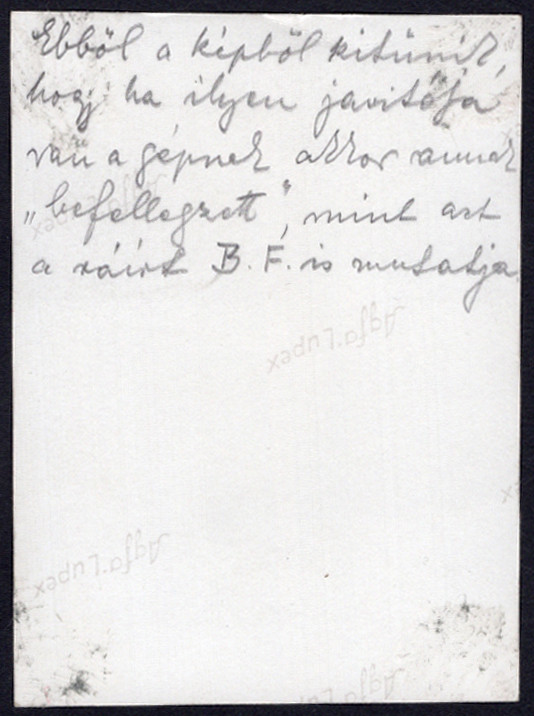 Ebből a képből kitünik,
hogy ha ilyen javitója
van a gépnek akkor annak
„befellegzett", mint azt
a ráirt B. F. is mutatja
Agfa Lupex
Agfa Lupex
Agfa Lupex
Agfa Lupex